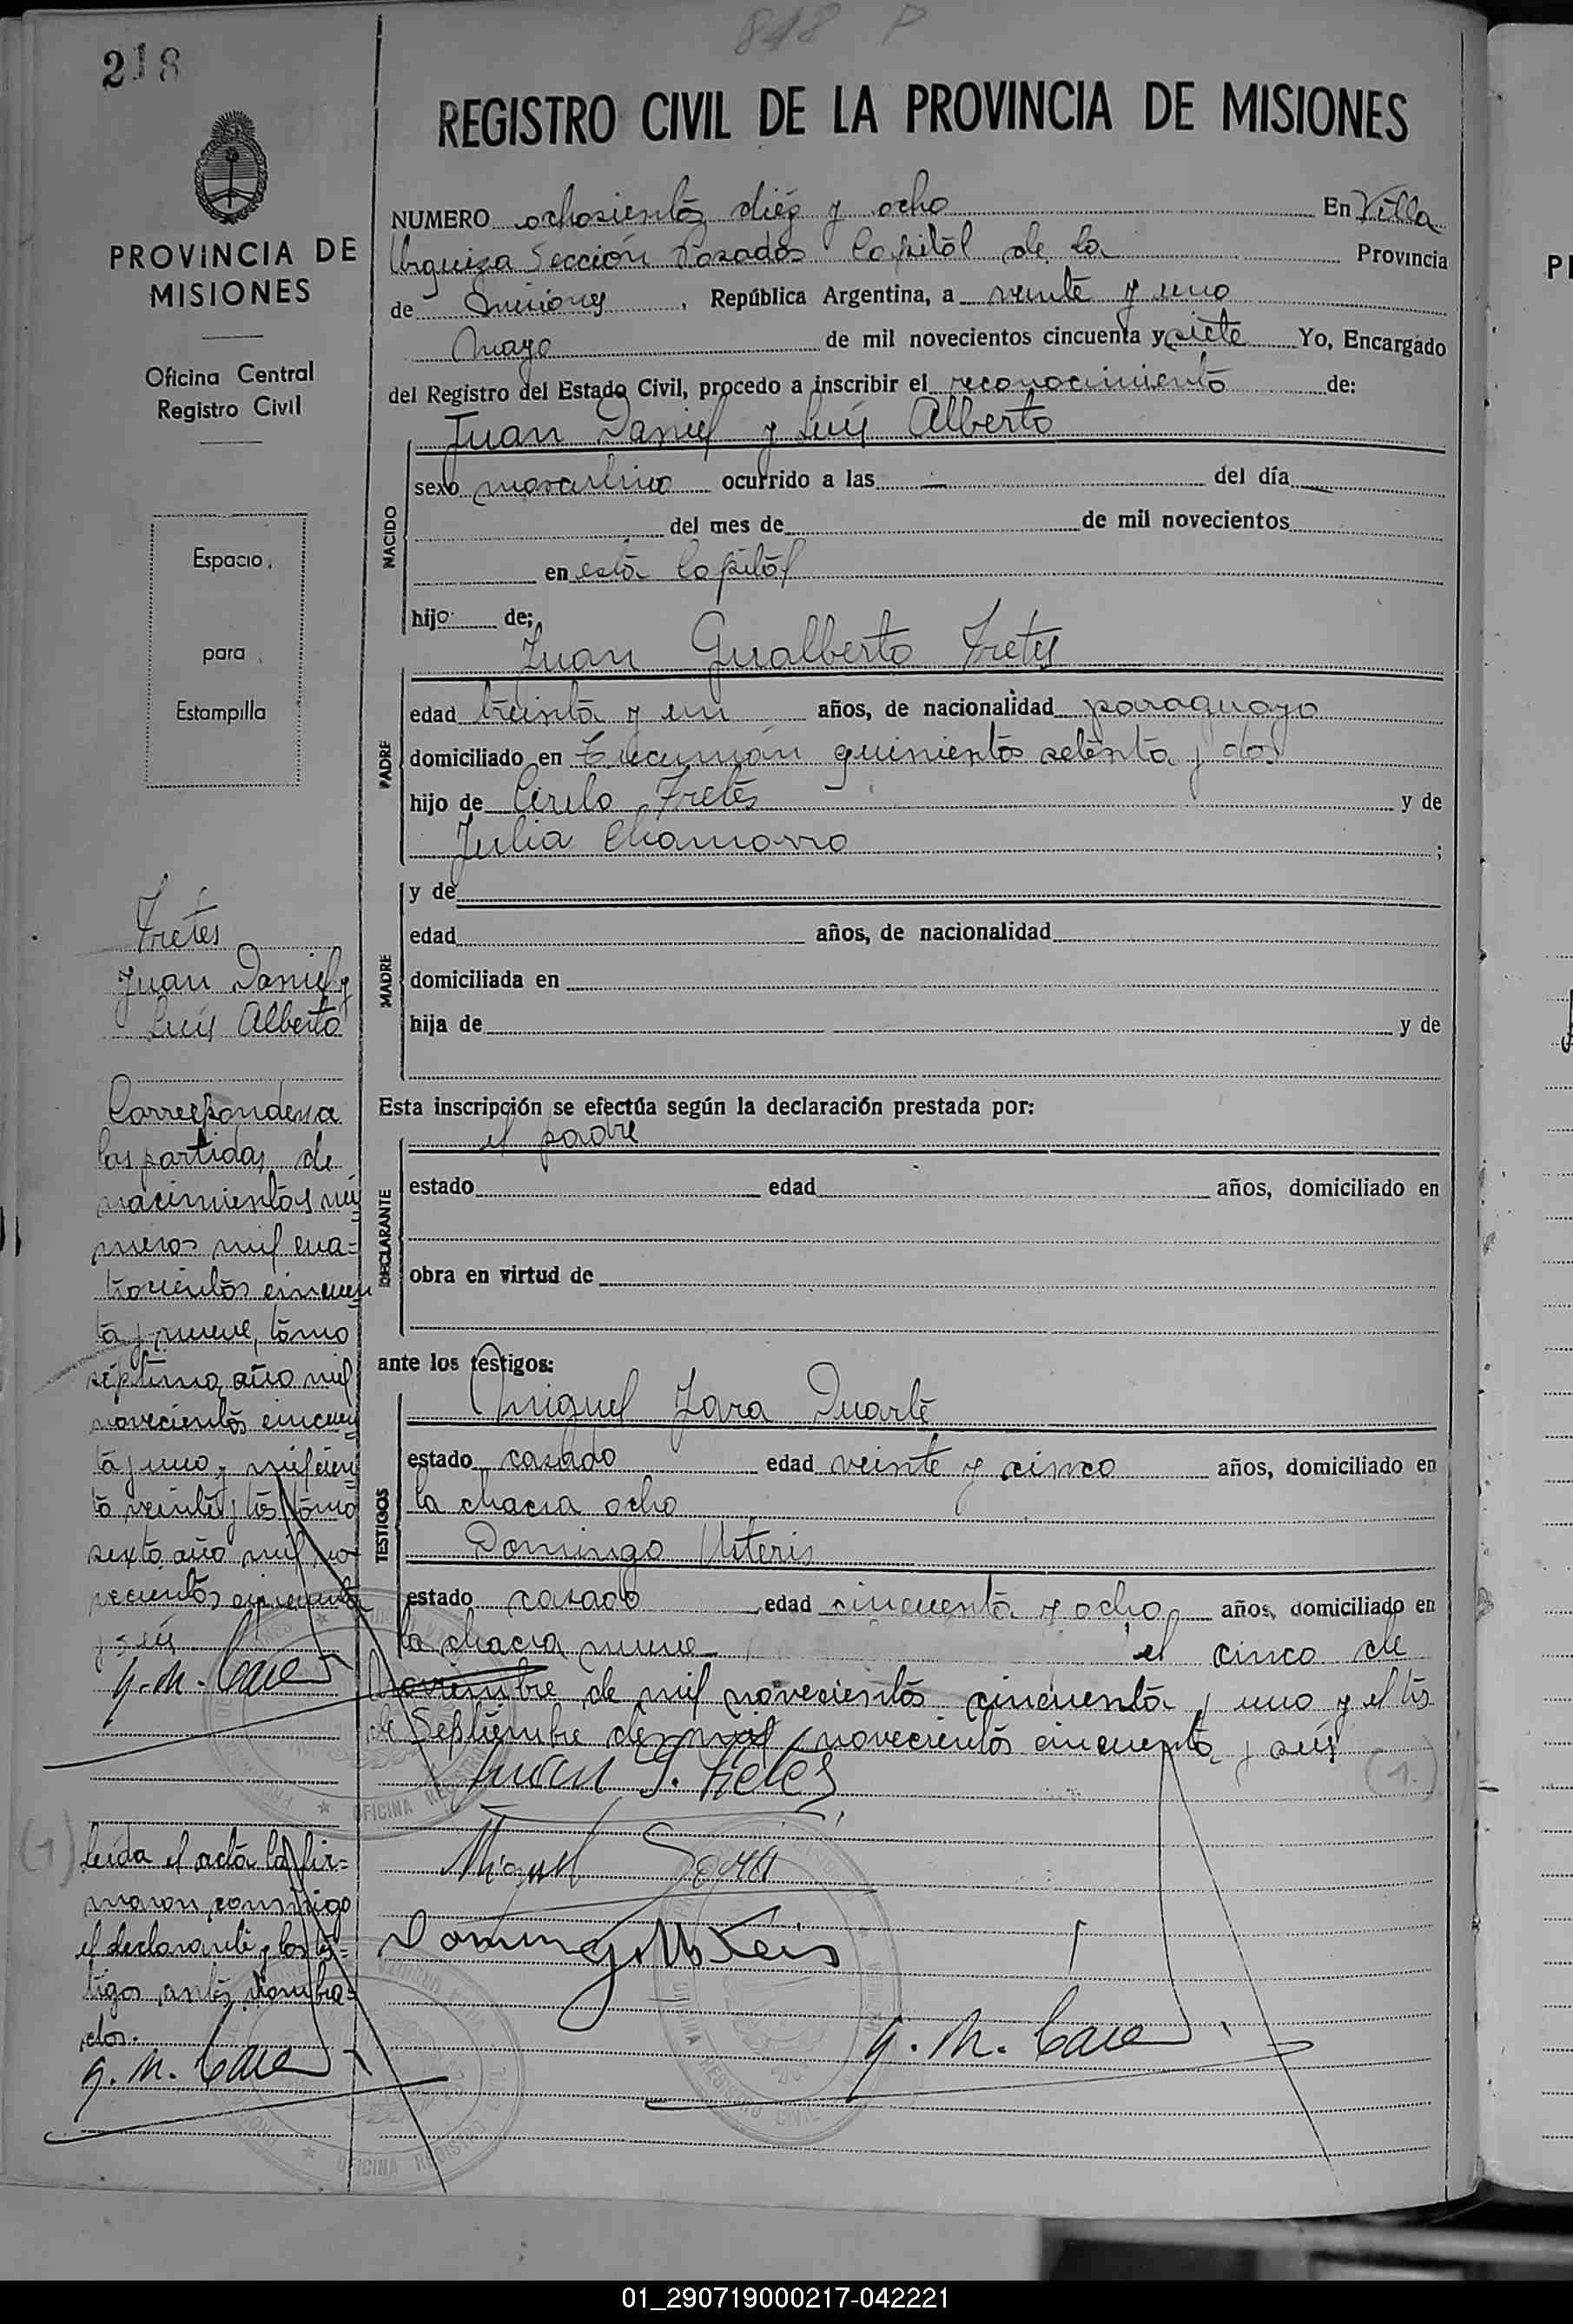 818 P
218
PROVINCIA DE
MISIONES
Oficina Central
Registro Civil
Espacio
para
Estampilla
Fretes
Juan Daniel y
Luis Alberto
Corresponden a
las partidas de
nacimientos nú
meros mil cua=
trocientos cincuen
ta y nueve, tomo
séptimo, año mil
novecientos cincuen
ta y uno y mil cien
to veinte y tres tomo
sexto año mil no-
vecientos cincuenta
y seis
(1) Leída el acta la fir=
maron conmigo
el declarante y los tes=
tigos antes nombra=
dos.
REGISTRO CIVIL DE LA PROVINCIA DE MISIONES
NUMERO ochosientos diéz y ocho En Villa
Urquiza Sección Posadas Capital de la Provincia
de Misiones, República Argentina, a veinte y uno
Mayo de mil novecientos cincuenta y siete Yo, Encargado
del Registro del Estado Civil, procedo a inscribir el reconocimiento de:
Juan Daniel y Luis Alberto
NACIDO
sexo masculino ocurrido a las — del día —
del mes de de mil novecientos
en esta Capital
hijo de;
Juan Gualberto Fretes
PADRE
edad treinta y un años, de nacionalidad paraguayo
domiciliado en Tucumán quinientos setenta y dos
hijo de Cirilo Fretes y de
Julia Chamorro ;
MADRE
y de
edad años, de nacionalidad
domiciliada en
hija de y de
Esta inscripción se efectúa según la declaración prestada por:
el padre
DECLARANTE
estado edad años, domiciliado en
obra en virtud de
ante los testigos:
Miguel Jara Duarte
TESTIGOS
estado casado edad veinte y cinco años, domiciliado en
la chacra ocho
Domingo
estado casado edad cincuenta y ocho años, domiciliado en
la chacra nueve el cinco de
Noviembre de mil novecientos cincuenta y uno y el tres
de Septiembre de mil novecientos cincuenta y seis (1.)
Juan G. Fretes
Miguel
Domingo
OFICINA REGISTRO CIVIL
01_290719000217-042221